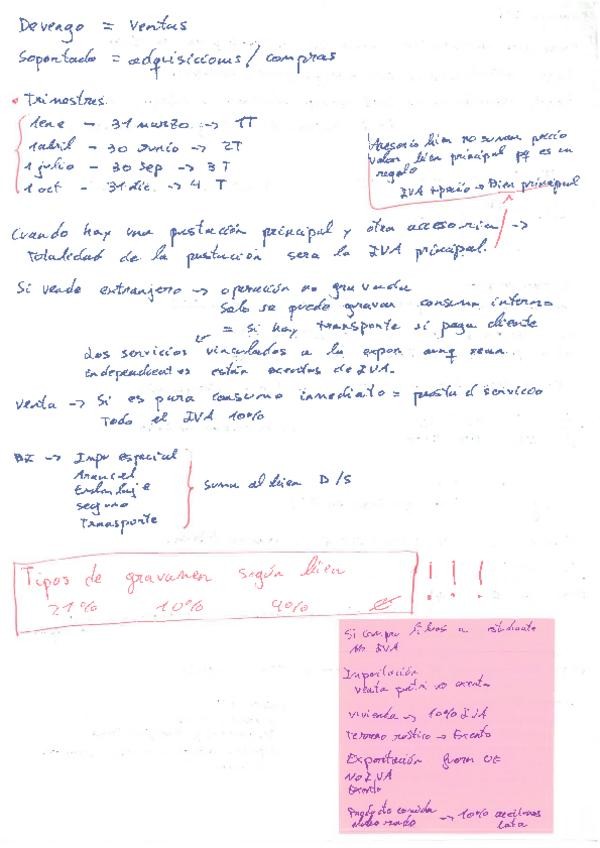 Devengo = ventas
Soportado = adquisicions / compras
• Trimestres
1 ene – 31 marzo -> 1T
1 abril – 30 Junio -> 2T
1 julio – 30 Sep -> 3T
1 oct – 31 dic. -> 4 T
Acesorio bien no suman precio
valor bien principal pq es un
regalo
IVA + precio -> Bien principal
Cuando hay una prestación principal y otra accesoria ->
totalidad de la prestación sera la IVA principal.
Si vende extranjero -> operación no gravada
Solo se puede gravar consumo interno
= Si hay transporte si paga cliente
Los servicios vinculados a la expor. aunq sean
independientes están exentos de IVA.
Venta -> Si es para consumo inmediato = prest d servicio
Todo el IVA 10%
BI -> Impu especial
Arancel
Embalaje
seguro
Transporte
suma al bien D/S
Tipos de gravamen según bien
21% 10% 4%
! ! !
Si compra libros a estudiante
No IVA
Importación
venta no exenta
vivienda -> 10% IVA
Terreno rústico -> Exento
Exportación fuera UE
No IVA
Exento
Producto comida
-> 10% aceitunas
lata